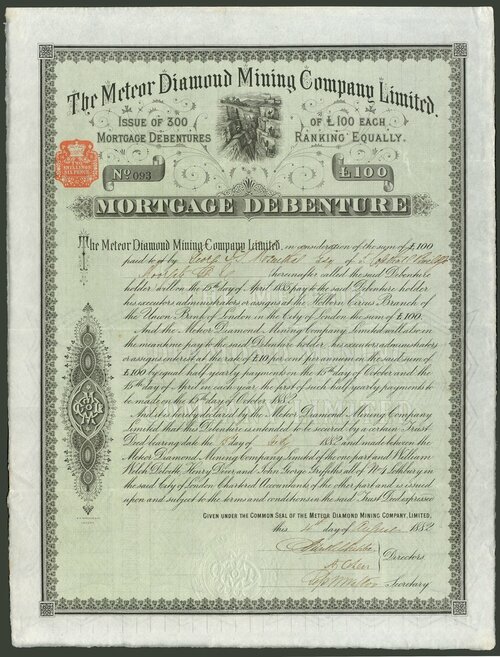 The Meteor Diamond Mining Company Limited.
ISSUE OF 300
MORTGAGE DEBENTURES
OF £100 EACH
RANKING EQUALLY.
No 093
£100
MORTGAGE DEBENTURE
The Meteor Diamond Mining Company Limited, in consideration of the sum of £100
paid to it by Esq of
hereinafter called the said Debenture
holder will on the 15th day of April 1885 pay to the said Debenture holder
his executors administrators or assigns at the Holborn Circus Branch of
the Union Bank of London in the City of London the sum of £100.
And the Meteor Diamond Mining Company Limited will also in
the meantime pay to the said Debenture holder, his executors administrators
or assigns interest at the rate of £10 per cent per annum on the said sum of
£100 by equal half yearly payments on the 15th day of October and the
15th day of April in each year the first of such half yearly payments to
be made on the 15th day of October 1882
And it is hereby declared by the Meteor Diamond Mining Company
Limited that this Debenture is intended to be secured by a certain Trust
Deed bearing date the day of 1882 and made between the
Meteor Diamond Mining Company Limited of the one part and William
Welch Deloitte Henry Dever and John George Griffiths all of No 4 Lothbury in
the said City of London Chartered Accountants of the other part and is issued
upon and subject to the terms and conditions in the said Trust Deed expressed
GIVEN UNDER THE COMMON SEAL OF THE METEOR DIAMOND MINING COMPANY, LIMITED,
this day of April 1882
Directors
Secretary